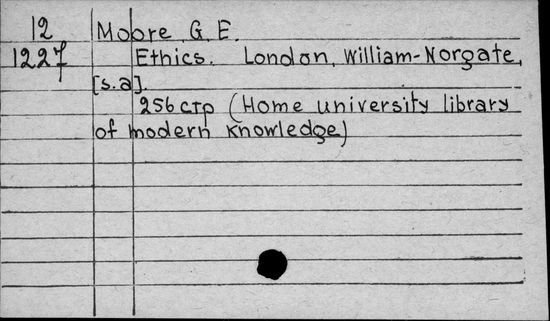 12 Moore G. E.
1227 Ethics. London, William-Norgate,
[s.a].
256 стр (Home university library
of modern knowledge)